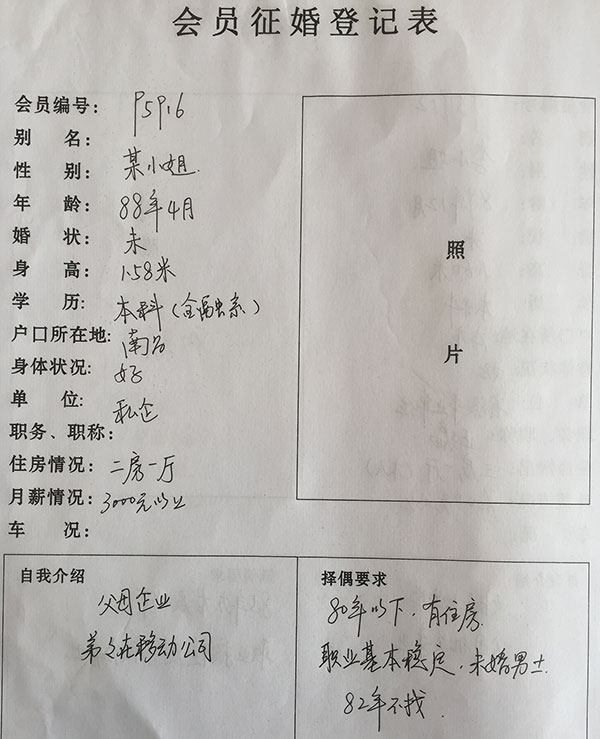 会员征婚登记表
会员编号： P5916
别 名：
性 别： 某小姐
年 龄： 88年4月
婚 状： 未
身 高： 1.58米
学 历： 本科（金融系）
户口所在地: 南昌
身体状况: 好
单 位: 私企
职务、职称:
住房情况: 二房一厅
月薪情况: 3000元以上
车 况:
照
片
自我介绍
父母企业
弟弟在移动公司
择偶要求
80年以下，有住房
职业基本稳定，未婚男士
82年不找